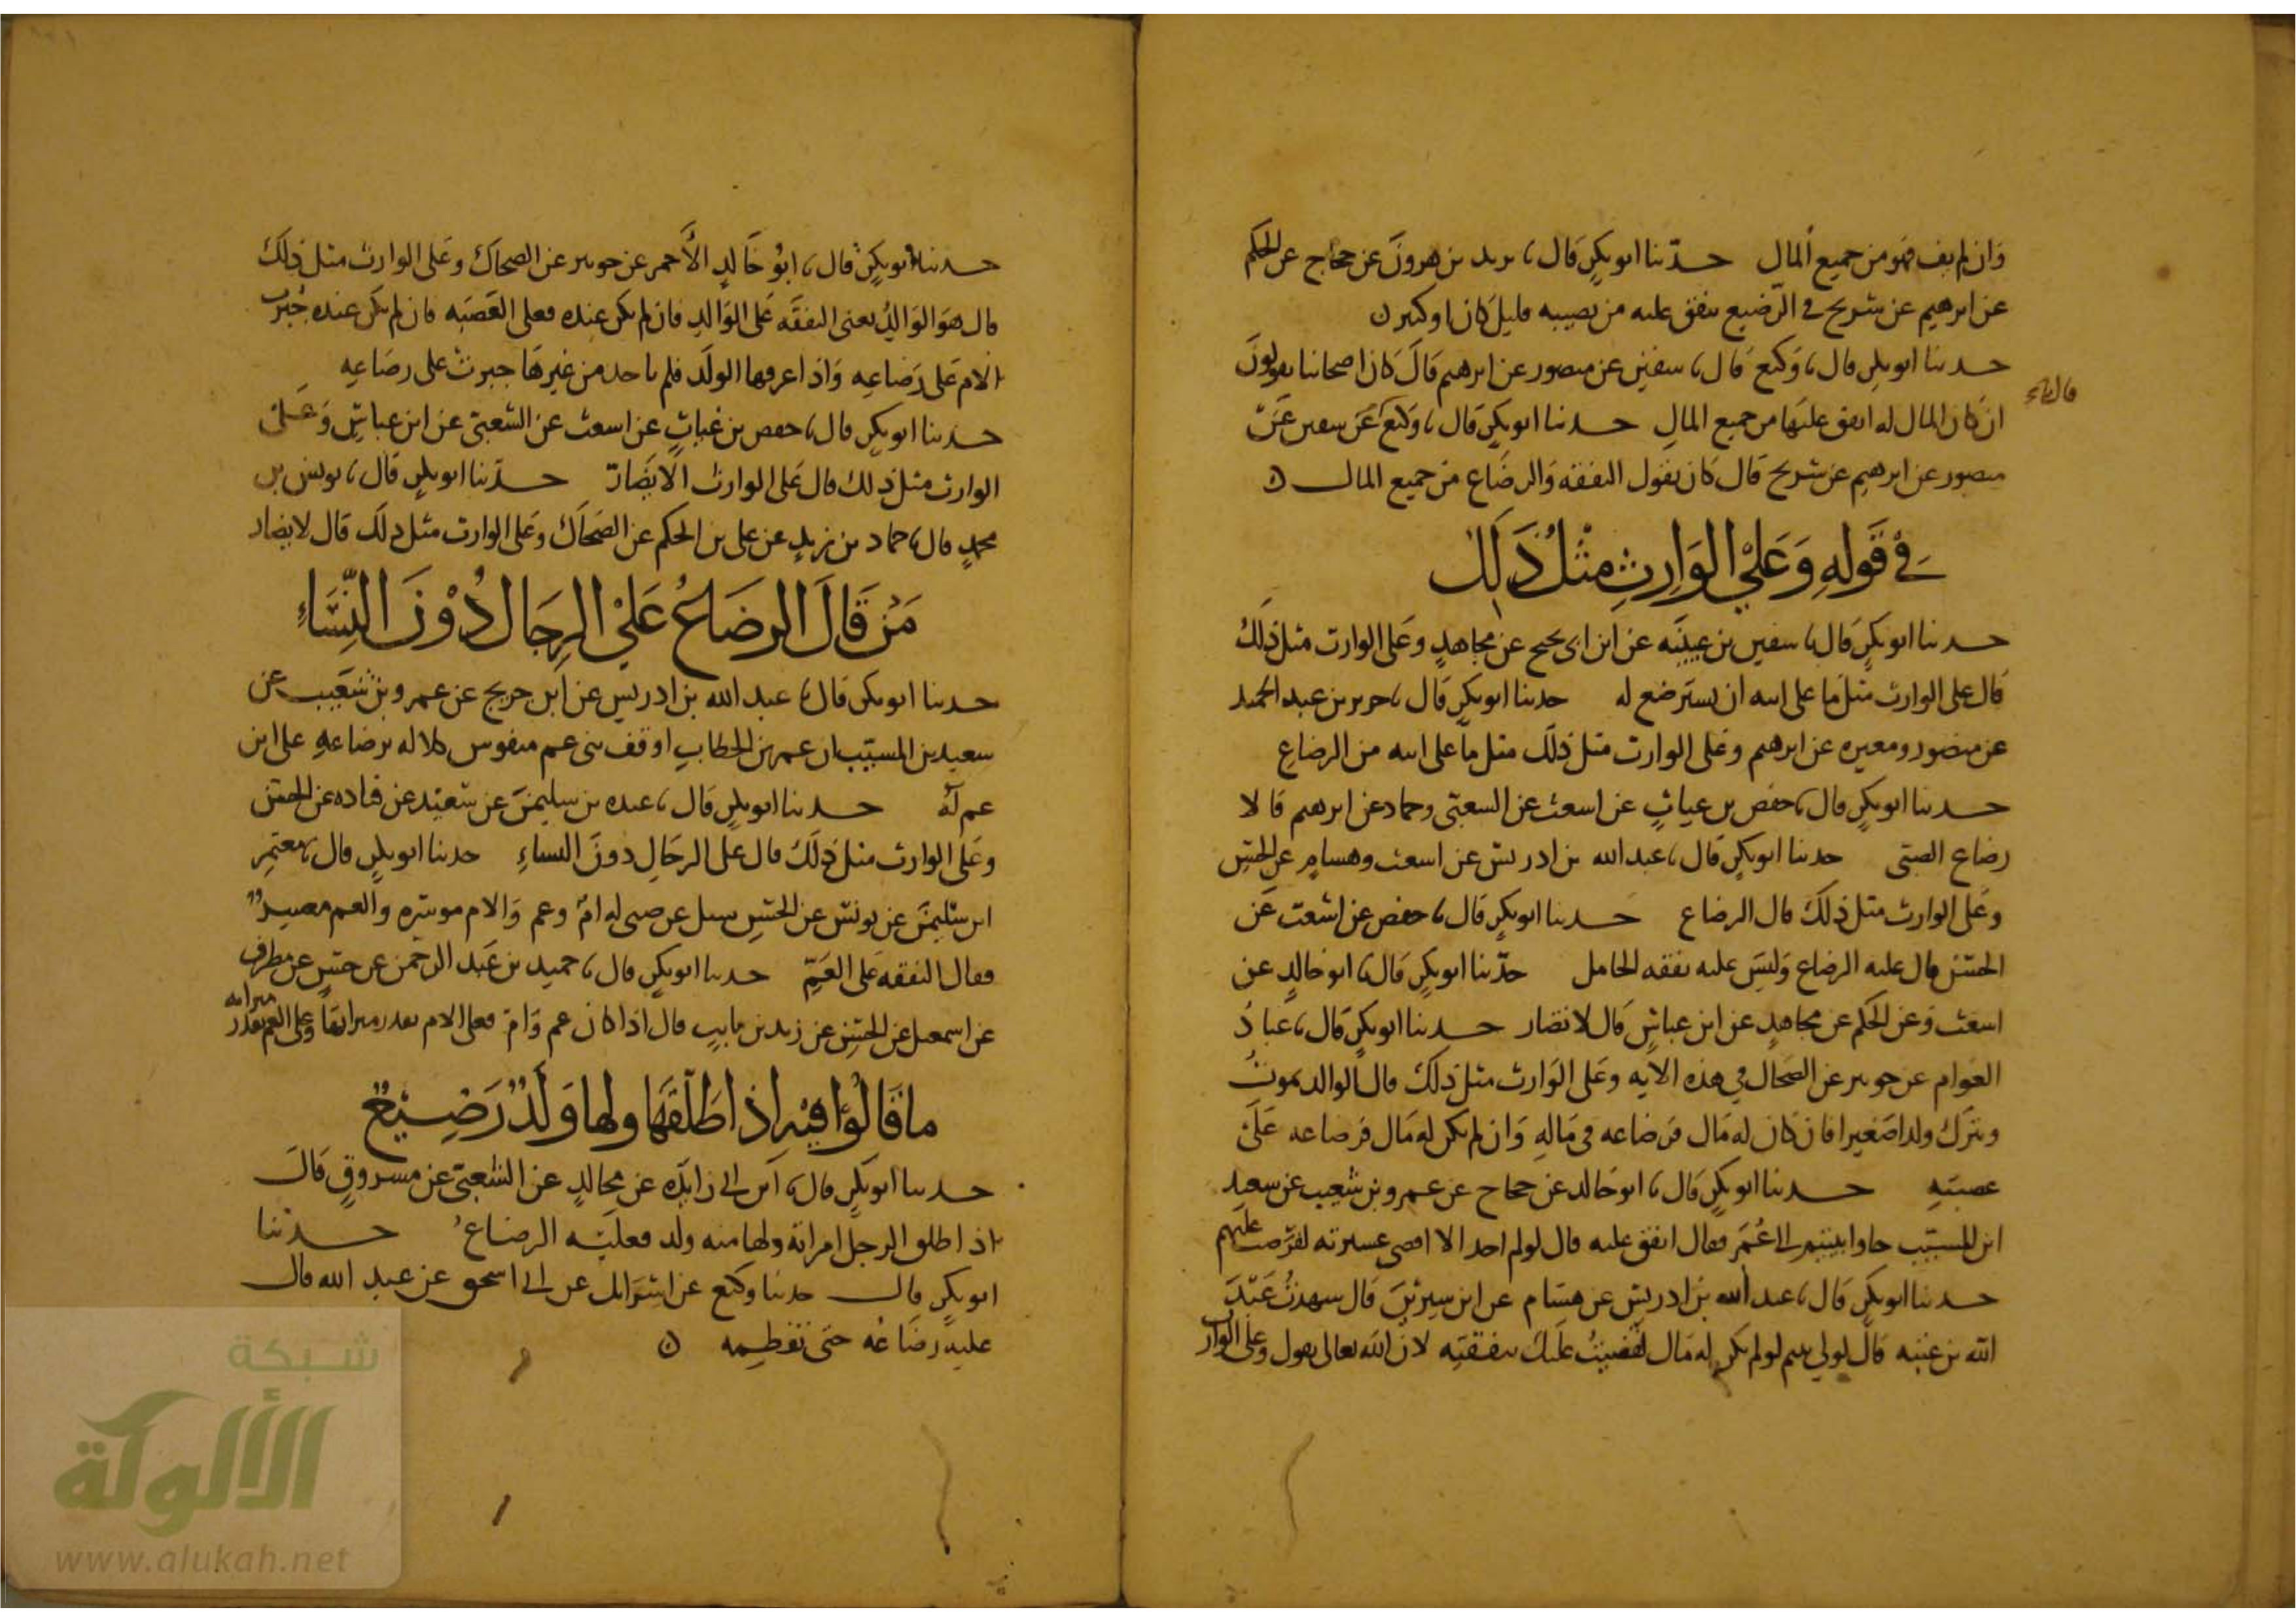 وان لم يف فهو من جميع المال حدثنا ابو بكر قال نا يزيد بن هرون عن حجاج عن الحكم
عن ابرهيم عن شريح في الرضيع ينفق عليه من نصيبه قليل كان او كثير
حدثنا ابو بكر قال نا وكيع قال نا سفين عن منصور عن ابرهيم قال كان اصحابنا يقولون
ان كان المال له انفق عليها من جميع المال حدثنا ابو بكر قال نا وكيع عن سفين عن
منصور عن ابرهيم عن شريح قال كان يقول النفقه والرضاع من جميع المال
في قوله وعلي الوارث مثل ذلك
حدثنا ابو بكر قال نا سفين بن عيينه عن ابن ابي نجيح عن مجاهد وعلى الوارث مثل ذلك
قال على الوارث مثل ما على ابيه ان يسترضع له حدثنا ابو بكر قال نا جرير بن عبد الحميد
عن منصور ومغيره عن ابرهيم وعلى الوارث مثل ذلك مثل ما على ابيه من الرضاع
حدثنا ابو بكر قال نا حفص بن غياث عن اشعث عن الشعبي وحماد عن ابرهيم قالا
رضاع الصبي حدثنا ابو بكر قال نا عبد الله بن ادريس عن اشعث وهشام عن الحسن
وعلى الوارث مثل ذلك قال الرضاع حدثنا ابو بكر قال نا حفص عن اشعث عن
الحسن قال عليه الرضاع وليس عليه نفقه الحامل حدثنا ابو بكر قال نا ابو خالد عن
اشعث وعن الحكم عن مجاهد عن ابن عباس قال لا تضار حدثنا ابو بكر قال نا عباد
العوام عن جويبر عن الضحاك في هذه الايه وعلى الوارث مثل ذلك قال الوالد يموت
ويترك ولدا صغيرا فان كان له مال فرضاعه في ماله وان لم يكن له مال فرضاعه على
عصبته حدثنا ابو بكر قال نا ابو خالد عن حجاج عن عمرو بن شعيب عن سعيد
ابن المسيب جاوا بيتيم الى عمر فقال انفق عليه قال لو لم اجد الا اقصى عشيرته لفرضت عليهم
حدثنا ابو بكر قال نا عبد الله بن ادريس عن هشام عن ابن سيرين قال شهدت عبد
الله بن عتبه قال لولي يتيم لو لم يكن له مال لقضيت عليك بنفقته لان الله تعالى يقول وعلى الوارث
حدثنا ابو بكر قال نا ابو خالد الاحمر عن جويبر عن الضحاك وعلى الوارث مثل ذلك
قال هو الوالد يعني النفقه على الوالد فان لم يكن عنده فعلى العصبه فان لم يكن عنده جبرت
الام على رضاعه واذا عرفها الولد فلم ياخذ من غيرها جبرت على رضاعه
حدثنا ابو بكر قال نا حفص بن غياث عن اشعث عن الشعبي عن ابن عباس وعلى
الوارث مثل ذلك قال على الوارث الا يضار حدثنا ابو بكر قال نا يونس بن
محمد قال نا حماد بن زيد عن علي بن الحكم عن الضحاك وعلى الوارث مثل ذلك قال لا يضار
من قال الرضاع علي الرجال دون النساء
حدثنا ابو بكر قال نا عبد الله بن ادريس عن ابن جريج عن عمرو بن شعيب عن
سعيد بن المسيب ان عمر بن الخطاب اوقف بني عم منفوس كلاله برضاعه على ابن
عم له حدثنا ابو بكر قال نا عبده بن سليمن عن سعيد عن قتاده عن الحسن
وعلى الوارث مثل ذلك قال على الرجال دون النساء حدثنا ابو بكر قال نا معتمر
ابن سليمن عن يونس عن الحسن سيل عن صبي له ام وعم والام موسره والعم معسر
فقال النفقه على العم حدثنا ابو بكر قال نا حميد بن عبد الرحمن عن حسن عن مطرف
عن اسمعيل عن الحسن عن زيد بن ثابت قال اذا كان عم وام فعلى الام بقدر ميراثها وعلى العم بقدر ميراثه
ما قالوا فيه اذا طلقها ولها ولد رضيع
حدثنا ابو بكر قال نا ابن ابي زايده عن مجالد عن الشعبي عن مسروق قال
اذا طلق الرجل امراته ولها منه ولد فعليه الرضاع حدثنا
ابو بكر قال حدثنا وكيع عن اسرايل عن ابي اسحق عن عبد الله قال
عليه رضاعه حتى تفطمه
شبكة
الألوكة
www.alukah.net